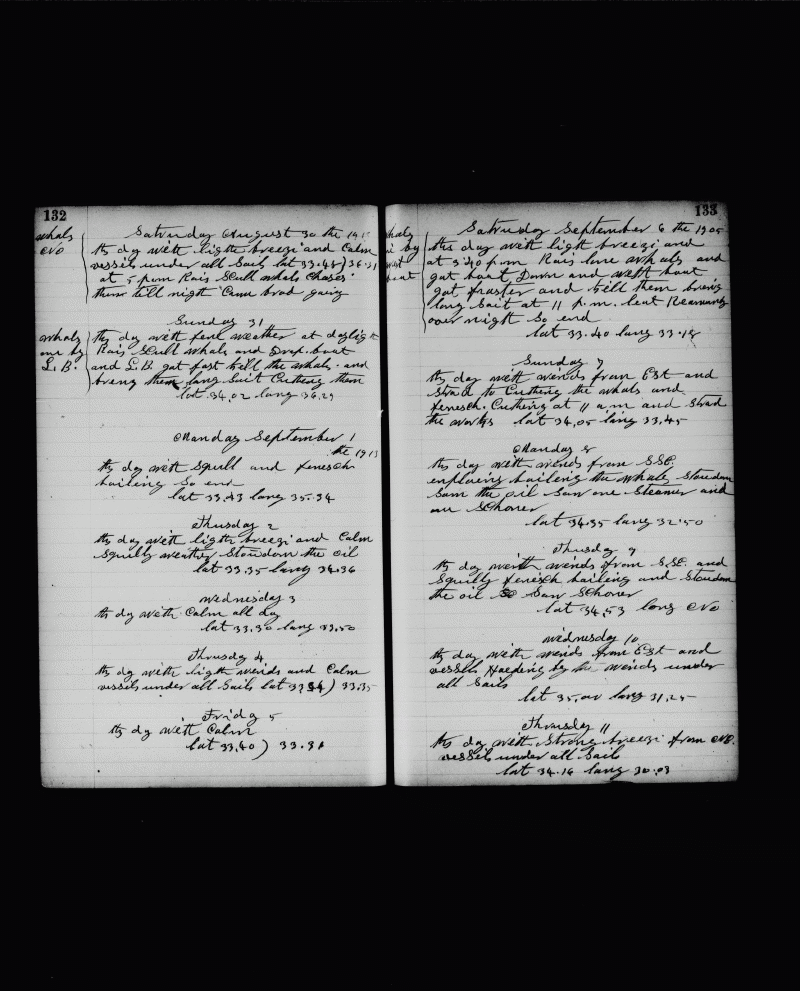 132
whals
No
Saturday August 30 the 191
ths dy with ligth breezi and Calm
vessels under all Sail lat 33.48) 36.31
at 5 p.m Rais Scull whals Chases
them till nigth Came brod gaing
Sunday 31
whals
one by
L. B.
ths dy with fene weather at dayligth
Rais Scull whals and Drop boat
and L.B. gat fast kill the whals. and
breng them lang Sait Cutteng them
lat 34.02 lang 36.29
Manday September 1
the 1913
ths dy with Squll and fenesch
baileng So end
lat 33.43 lang 35.34
Thusday 2
ths dy with ligth breezi and Calm
Squilly weather Stowdom the oil
lat 33.35 lang 34.36
wednesday 3
ths dy with Calm all day
lat 33.30 lang 33.50
Thrusday 4
ths dy with ligth wends and Calm
vessels under all Sails lat 33 54) 33.35
Friday 5
ths dy with Calm
lat 33.40) 33.31
133
whals
by
boat
Satruday September 6 the 1905
ths day with ligth breezi and
at 3 40 p.m Rais lone whals and
gat boat Down and with boat
gat fraster and kill them breng
lang Sait at 11 p.m. leat
over nigth So end
lat 33.40 lang 33.18
Sunday 7
ths dy with wends fram Est and
Strad to Cutteng the whals and
fenesch. Cutteng at 11 a m and Strad
the works lat 34.05 lang 33.45
Manday 8
ths dy with wends from S.SE.
baileng the whals Stowdom
Som the oil Saw one Steamer and
one Schoner
lat 34.35 lang 32.50
Thusday 9
ths dy with wends from S.SE. and
Squilly fenesch baileng and Stowdom
the oil So Saw Schoner
lat 34.53 long No
Wednusday 10
ths dy with wends from Est and
vessels by the wends under
all Sails
lat 35.00 lang 31.25
Thrusday 11
ths dy with Strong breezi from NE.
vessels under all Sails
lat 34.16 lang 30.03